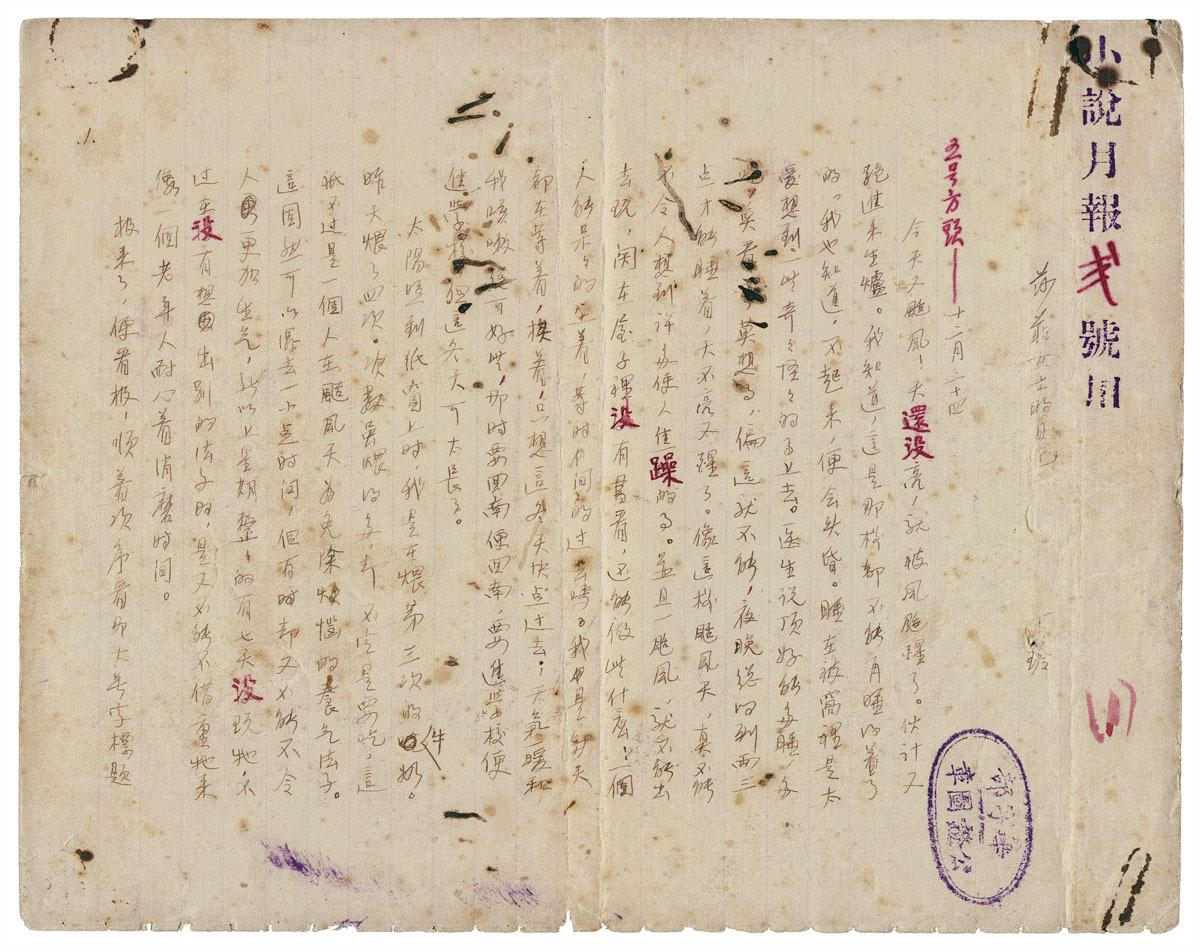 小說月報弍號用
(1)
莎菲女士的日記
丁玲
五号方頭——十二月二十四
今天又颳風！天還没亮，就被風颳醒了。伙計又
跑進来生爐。我知道，這是那樣都不能再睡得着了
的。我也知道，不起来，便會头昏。睡在被窩裡是太
愛想到一些奇々怪々的事上去。医生说顶好能多睡，多
吃，莫看书，莫想事，偏這就不能，夜晚總得到两三
点才能睡着，天不亮又醒了。像這樣颳風天，真不能
不令人想到许多使人焦躁的事。並且一颳風，就不能出
去玩，関在屋子裡没有書看，还能做些什麽？一個
人能呆々的坐着，等时间的过去嗎？我是每天
都在等着，挨着，只想這冬天快点过去；天氣暖和
我咳嗽總可好些，那时要回南便回南，要進學校便
進學校，但這冬天可太長了。
太陽照到纸窗上时，我是在煨第三次的牛奶。
昨天煨了四次。次数虽煨得多，却不定是要吃，這
祇不过是一個人在颳風天為免除煩惱的養气法子。
這固然可以混去一小点时间，但有时却又不能不令
人更加生气，所以上星期整々的有七天没玩牠，不
过在没有想出别的法子时，是又不能不借重牠来
像一個老年人耐心着消磨时间。
报来了，便看报，顺着次序看那大号字標題